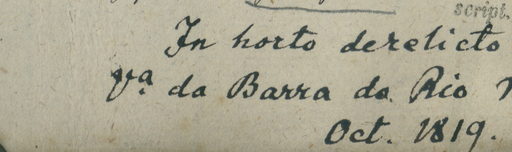 script.
In horto derelicto
Va. da Barra do Rio
Oct. 1819.